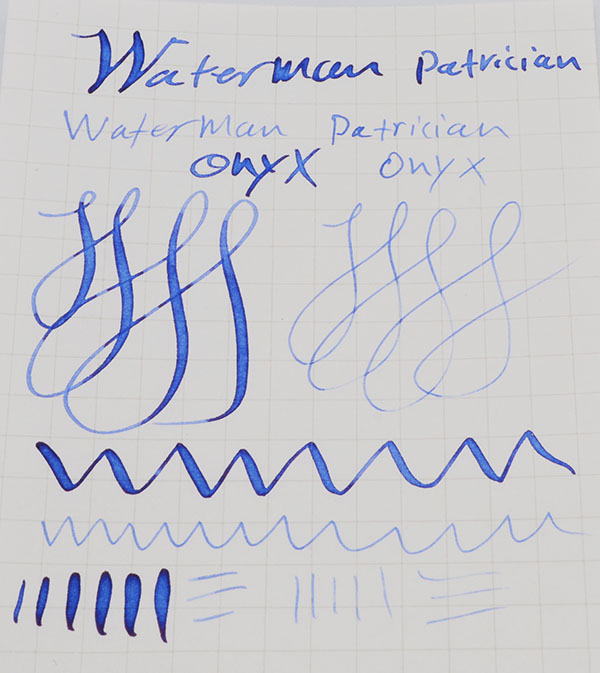 Waterman Patrician
Waterman Patrician
Onyx Onyx